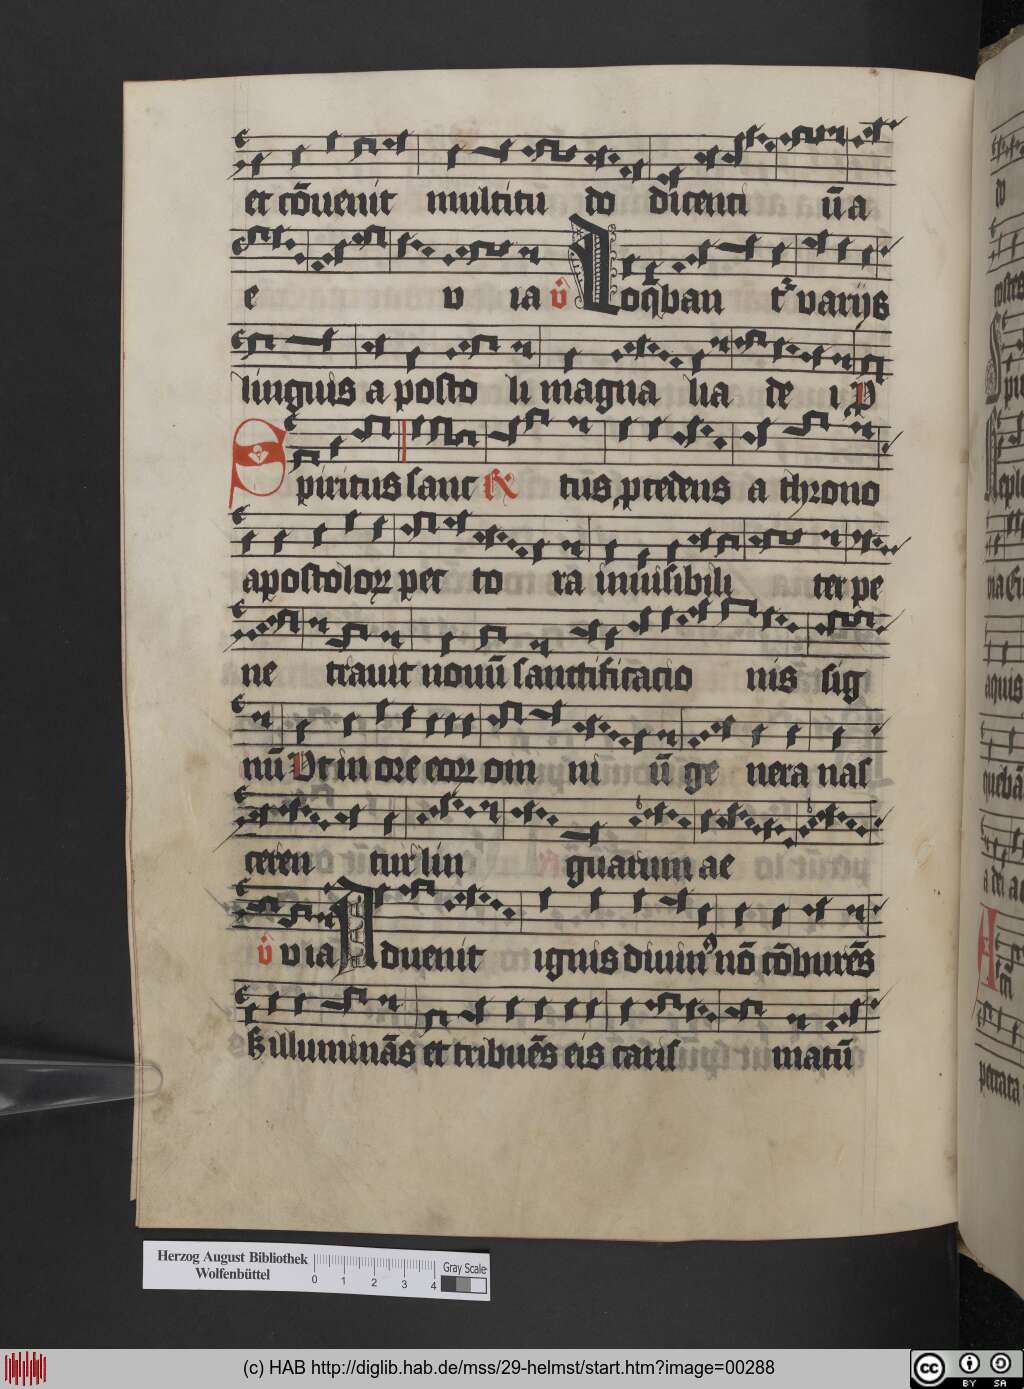 et cōuenit multitu do dicenti ū a
e v ia v̂ Loq̄ban t᷑ varijs
linguis aposto li magna lia de i P
Spiritus sanc R̷ tus ꝓcedens a throno
apostoloꝝ pec to ra inuisibili ter pe
ne trauit nouū sanctificacio nis sig
nū Vt in ore eoꝝ om ni ū ge nera nas
ceren tur lin guarum ae
v̂ v ia Aduenit ignis diuinꝰ nō cōburēs
ß illuminās et tribuēs eis caris matū
Herzog August Bibliothek
Wolfenbüttel
0 1 2 3 4
Gray Scale
(c) HAB http://diglib.hab.de/mss/29-helmst/start.htm?image=00288
cc BY SA